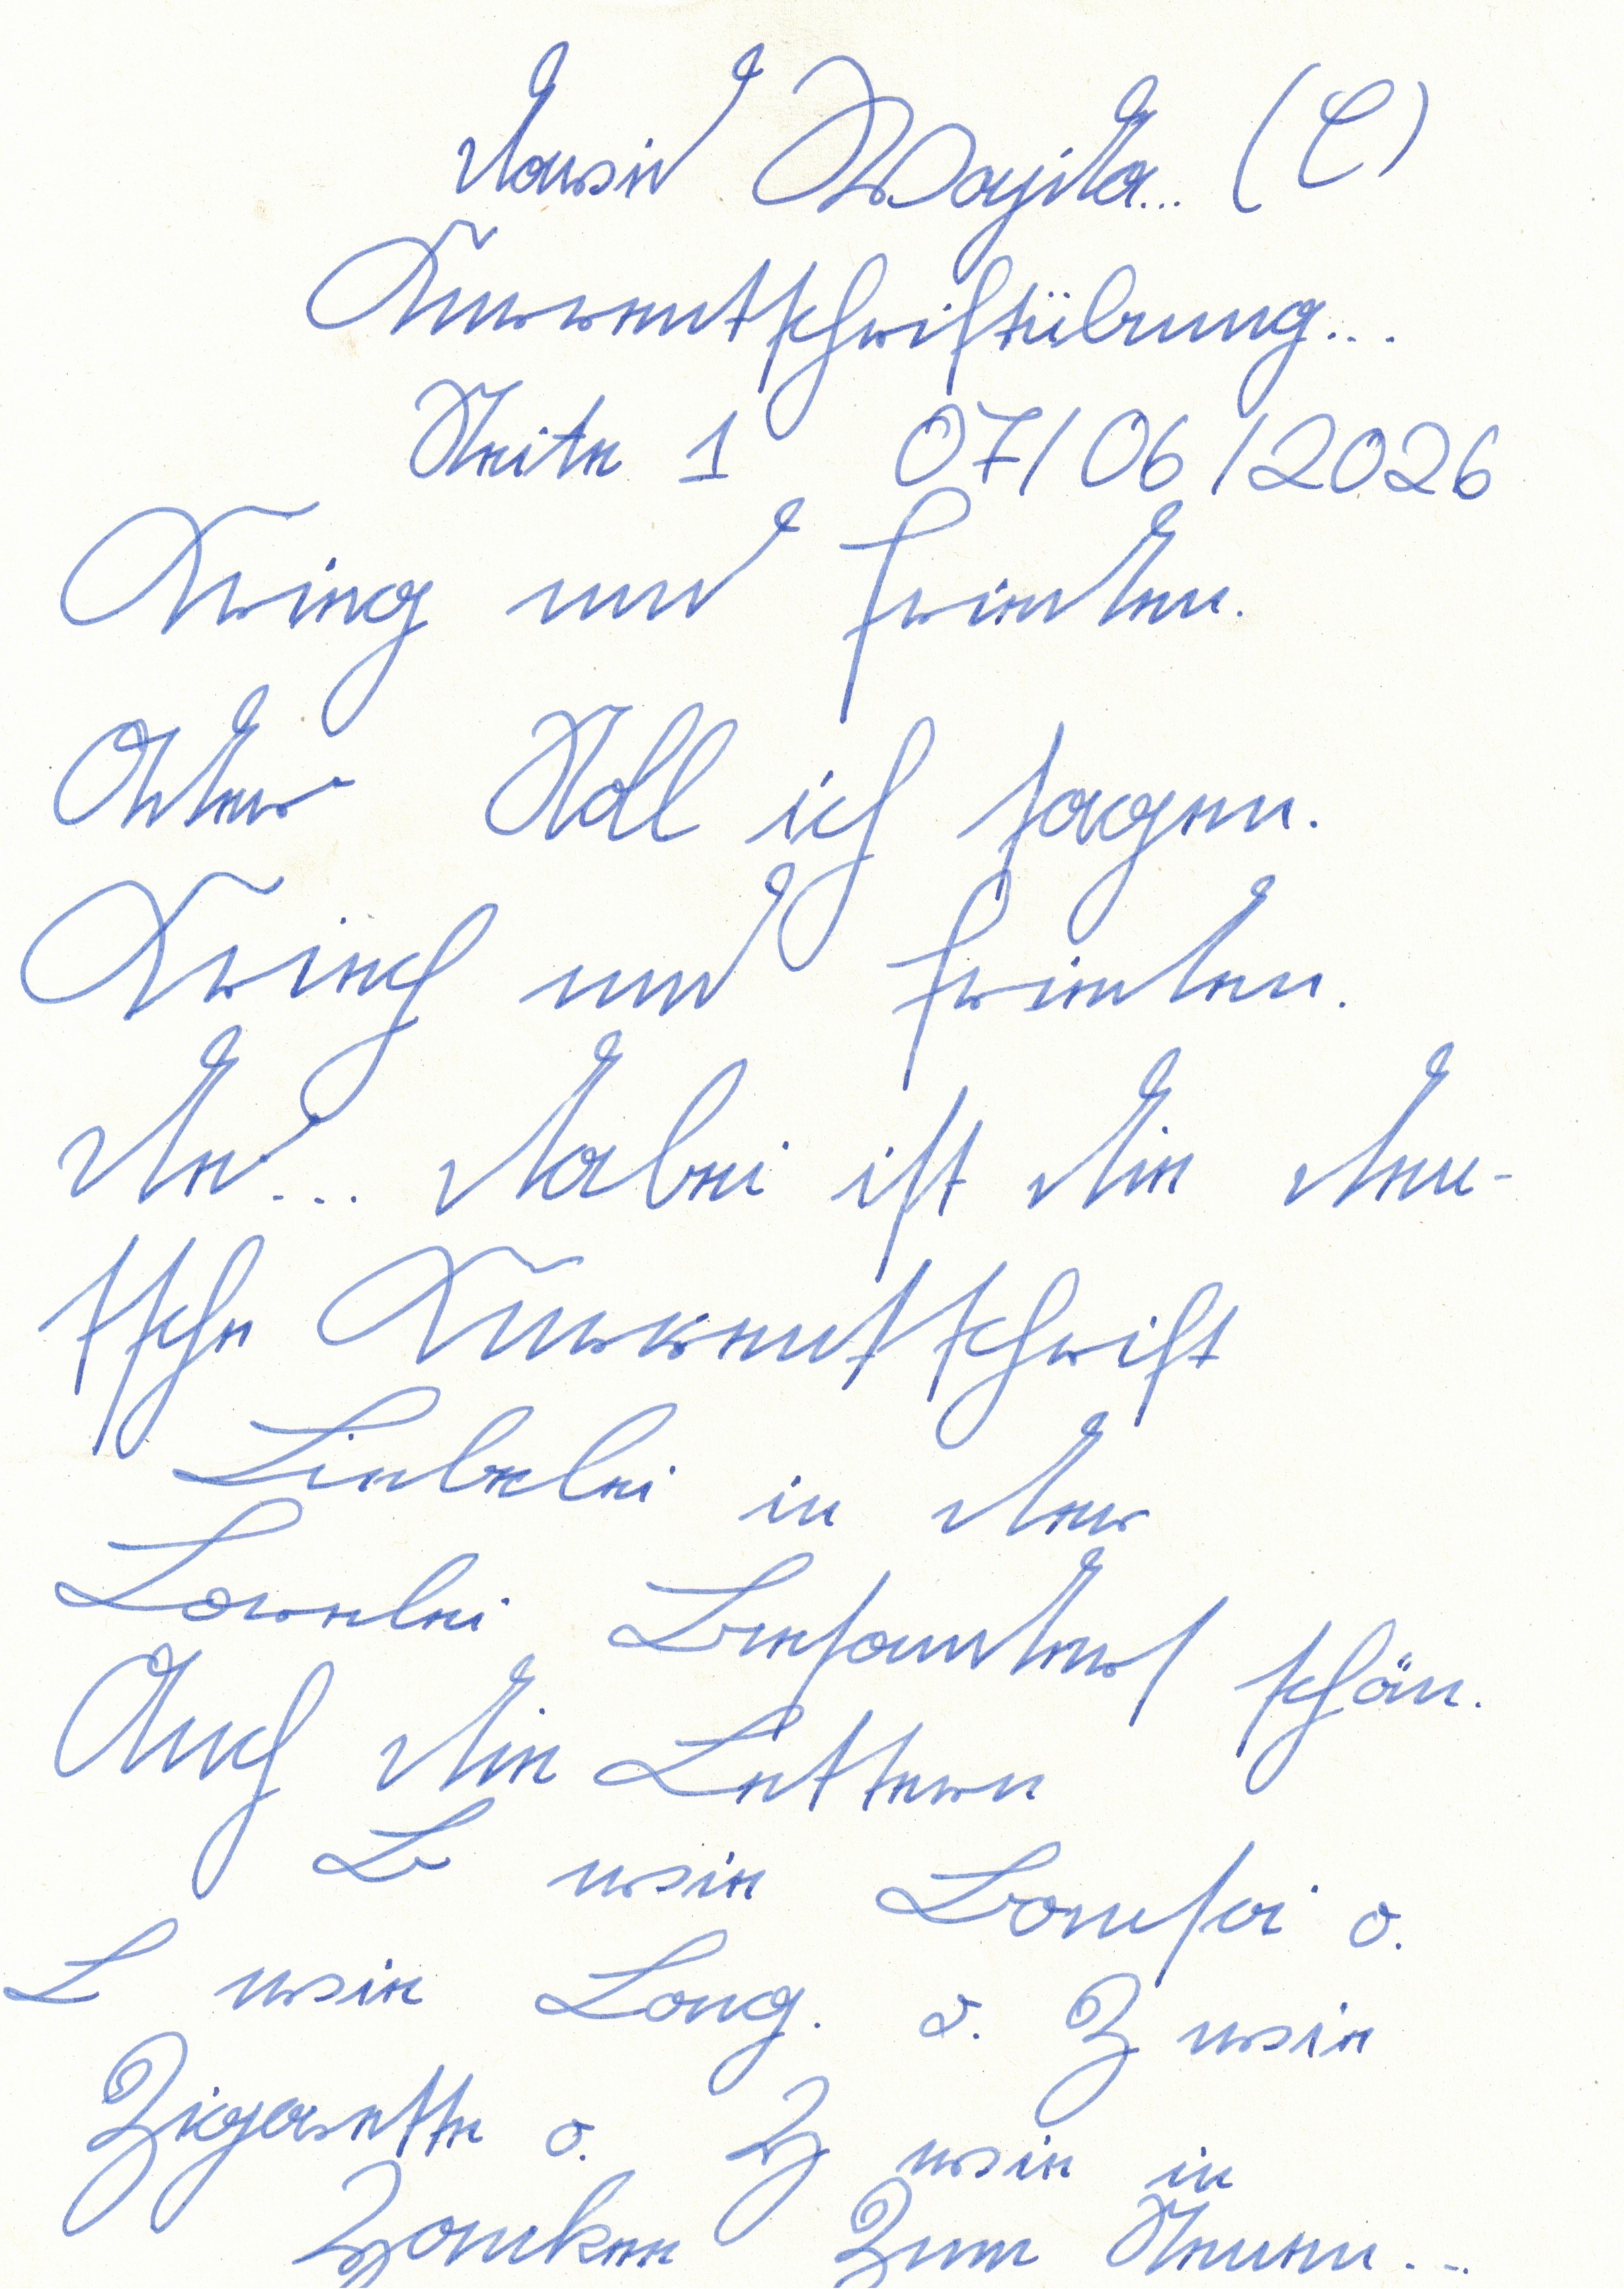 David Wajda... (C)
Kurrentschriftübung...
Seite 1 07/06/2026
Krieg und Frieden.
Oder Soll ich sagen.
Kriech und Frieden.
De... Dabei ist die deu-
tsche Kurrentschrift
Liebelei in der
Lorelei besonders schön.
Auch die Lettern
B wie Bonsai o.
L wie Lang. o. Z wie
Zigarette o. Z wie in
Zanken Zum Sennen...